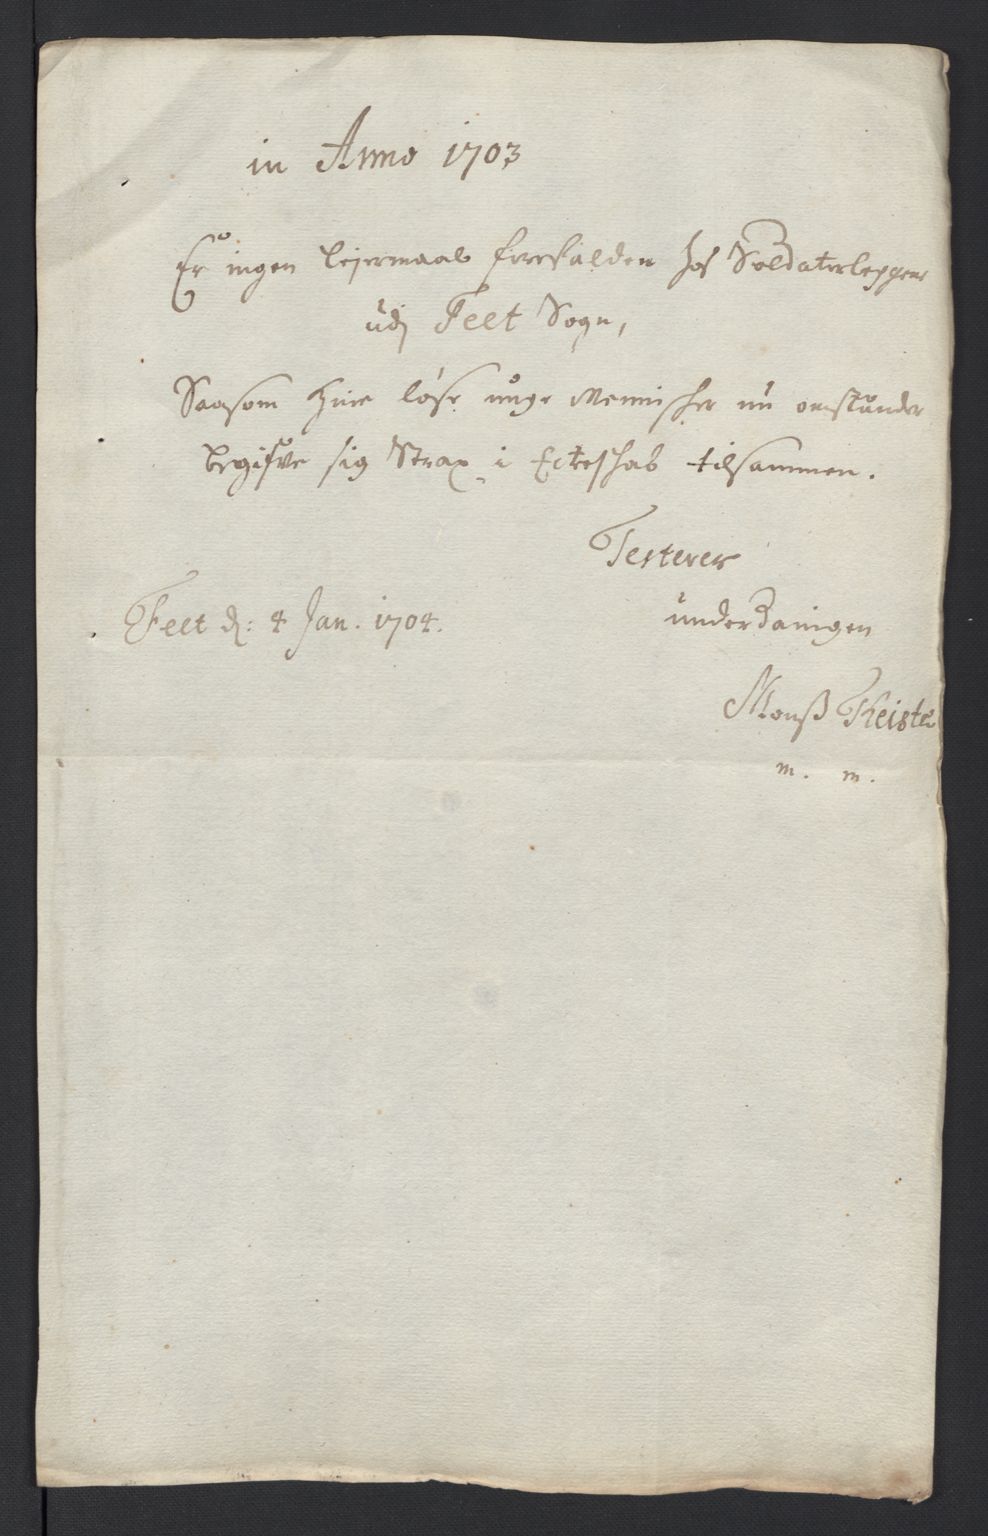 in Anno 1703
Er ingen leiermaal forfalden hos Soldaterleggene
udj Feet Sogn,
Saasom løse unge Mennisker nu omstunder
begifve sig Strax i Ecteskab tilsammen.
Testerer
Feet d: 4 Jan. 1704.
underdanigen
Monß Feiste
m. m.